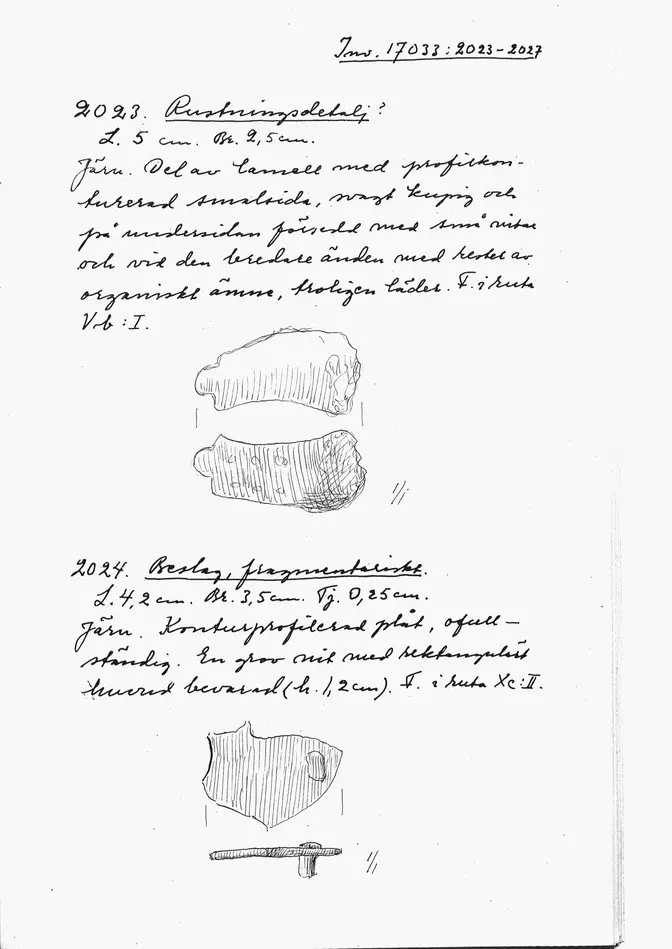 Inv. 17033:2023-2027
2023. Rustningsdetalj?
L. 5 cm. Br. 2,5 cm.
Järn. Del av lamell med profilkon-
turerad smalsida, svagt kupig och
på undersidan försedd med små nitar
och vid den bredare änden med rester av
organiskt ämne, troligen läder. F. i ruta
Vb:I.
1/1
2024. Beslag, fragmentariskt.
L. 4,2 cm. Br. 3,5 cm. Tj. 0,25 cm.
Järn. Konturprofilerad plåt, ofull-
ständig. En grov nit med rektangulärt
huvud bevarad (h. 1,2 cm). F. i ruta Xc:II.
1/1